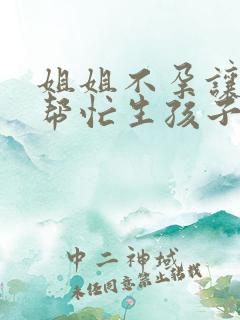 姐姐不孕讓
帮忙生孩子
中二神域
未经同意禁止转载